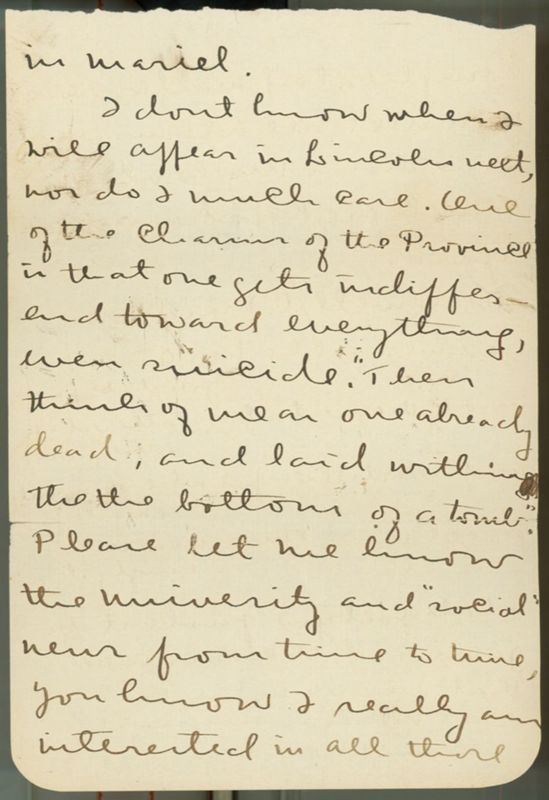 in mariel.
I dont know when I
will appear in Lincoln next,
nor do I much care. One
of the charms of the Province
is that one gets indiffer-
end toward everything,
even suicide." Then
think of me as one already
dead, and laid withing
the the bottom of a tomb".
Please let me know
the university and "social"
news from time to time,
you know I really am
interested in all those